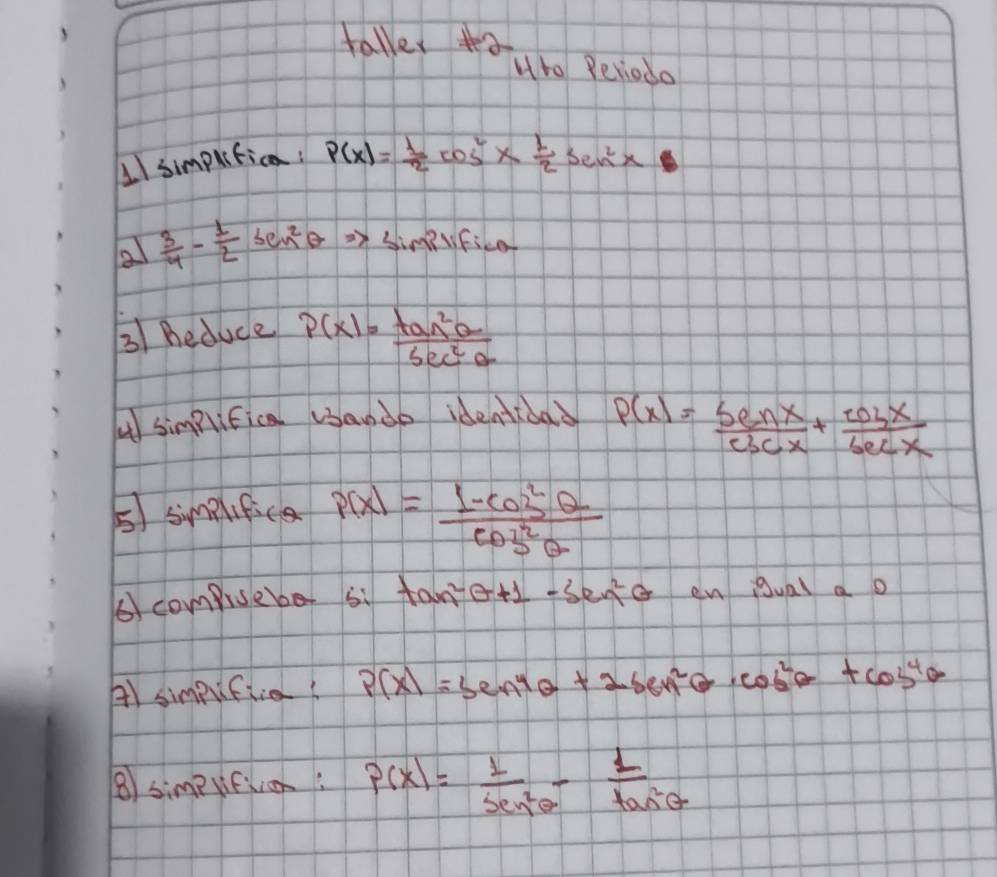 taller #2
4to Periodo
1) simplifica: P(x) = 1/2 cos² x 1/2 sen² x
2) 3/4 - 1/2 sen²θ => simplifica
3) Reduce P(x) = tan²θ / sec²θ
4) simplifica usando identidad P(x) = senx/cscx + cosx/secx
5) simplifica P(x) = 1-cos²θ / cos²θ
6) comprueba si tan²θ+1 -sen²θ en igual a 0
7) simplifica: P(x) = sen⁴θ + 2sen²θ · cos²θ + cos⁴θ
8) simplifica: P(x) = 1/sen²θ - 1/tan²θ